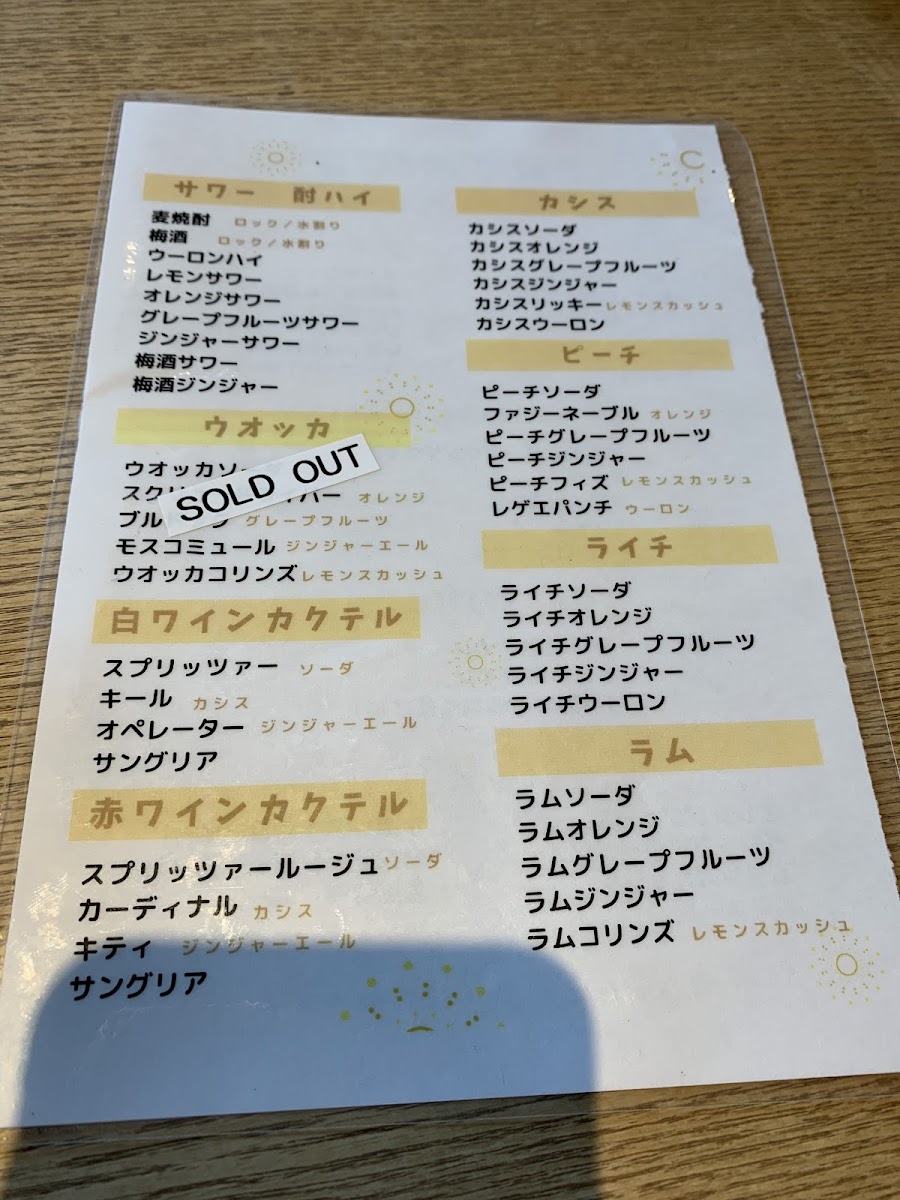 サワー 酎ハイ
麦焼酎 ロック/水割り
梅酒 ロック/水割り
ウーロンハイ
レモンサワー
オレンジサワー
グレープフルーツサワー
ジンジャーサワー
梅酒サワー
梅酒ジンジャー
ウオッカ
SOLD OUT
ウオッカソー
スクリ イバー オレンジ
ブル グ グレープフルーツ
モスコミュール ジンジャーエール
ウオッカコリンズ レモンスカッシュ
白ワインカクテル
スプリッツァー ソーダ
キール カシス
オペレーター ジンジャーエール
サングリア
赤ワインカクテル
スプリッツァールージュ ソーダ
カーディナル カシス
キティ ジンジャーエール
サングリア
カシス
カシスソーダ
カシスオレンジ
カシスグレープフルーツ
カシスジンジャー
カシスリッキー レモンスカッシュ
カシスウーロン
ピーチ
ピーチソーダ
ファジーネーブル オレンジ
ピーチグレープフルーツ
ピーチジンジャー
ピーチフィズ レモンスカッシュ
レゲエパンチ ウーロン
ライチ
ライチソーダ
ライチオレンジ
ライチグレープフルーツ
ライチジンジャー
ライチウーロン
ラム
ラムソーダ
ラムオレンジ
ラムグレープフルーツ
ラムジンジャー
ラムコリンズ レモンスカッシュ